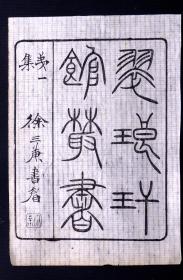 翠琅玕
館叢書
苐一
集
徐三庚書